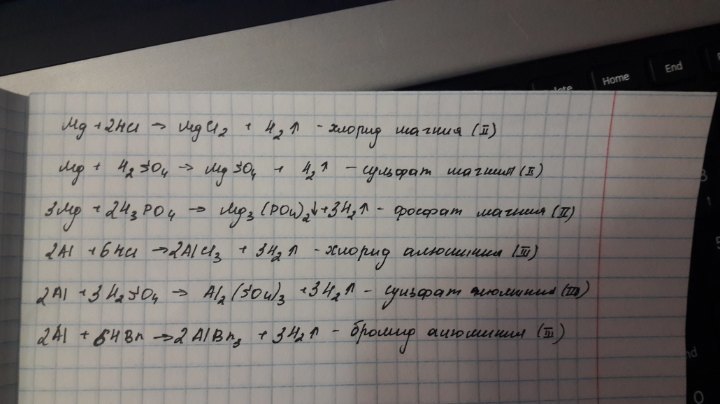 Home End
Mg + 2HCl → MgCl₂ + H₂↑ - хлорид магния (II)
Mg + H₂SO₄ → MgSO₄ + H₂↑ - сульфат магния (II)
3Mg + 2H₃PO₄ → Mg₃(PO₄)₂↓ + 3H₂↑ - фосфат магния (II)
2Al + 6HCl → 2AlCl₃ + 3H₂↑ - хлорид алюминия (III)
2Al + 3H₂SO₄ → Al₂(SO₄)₃ + 3H₂↑ - сульфат алюминия (III)
2Al + 6HBr → 2AlBr₃ + 3H₂↑ - бромид алюминия (III)